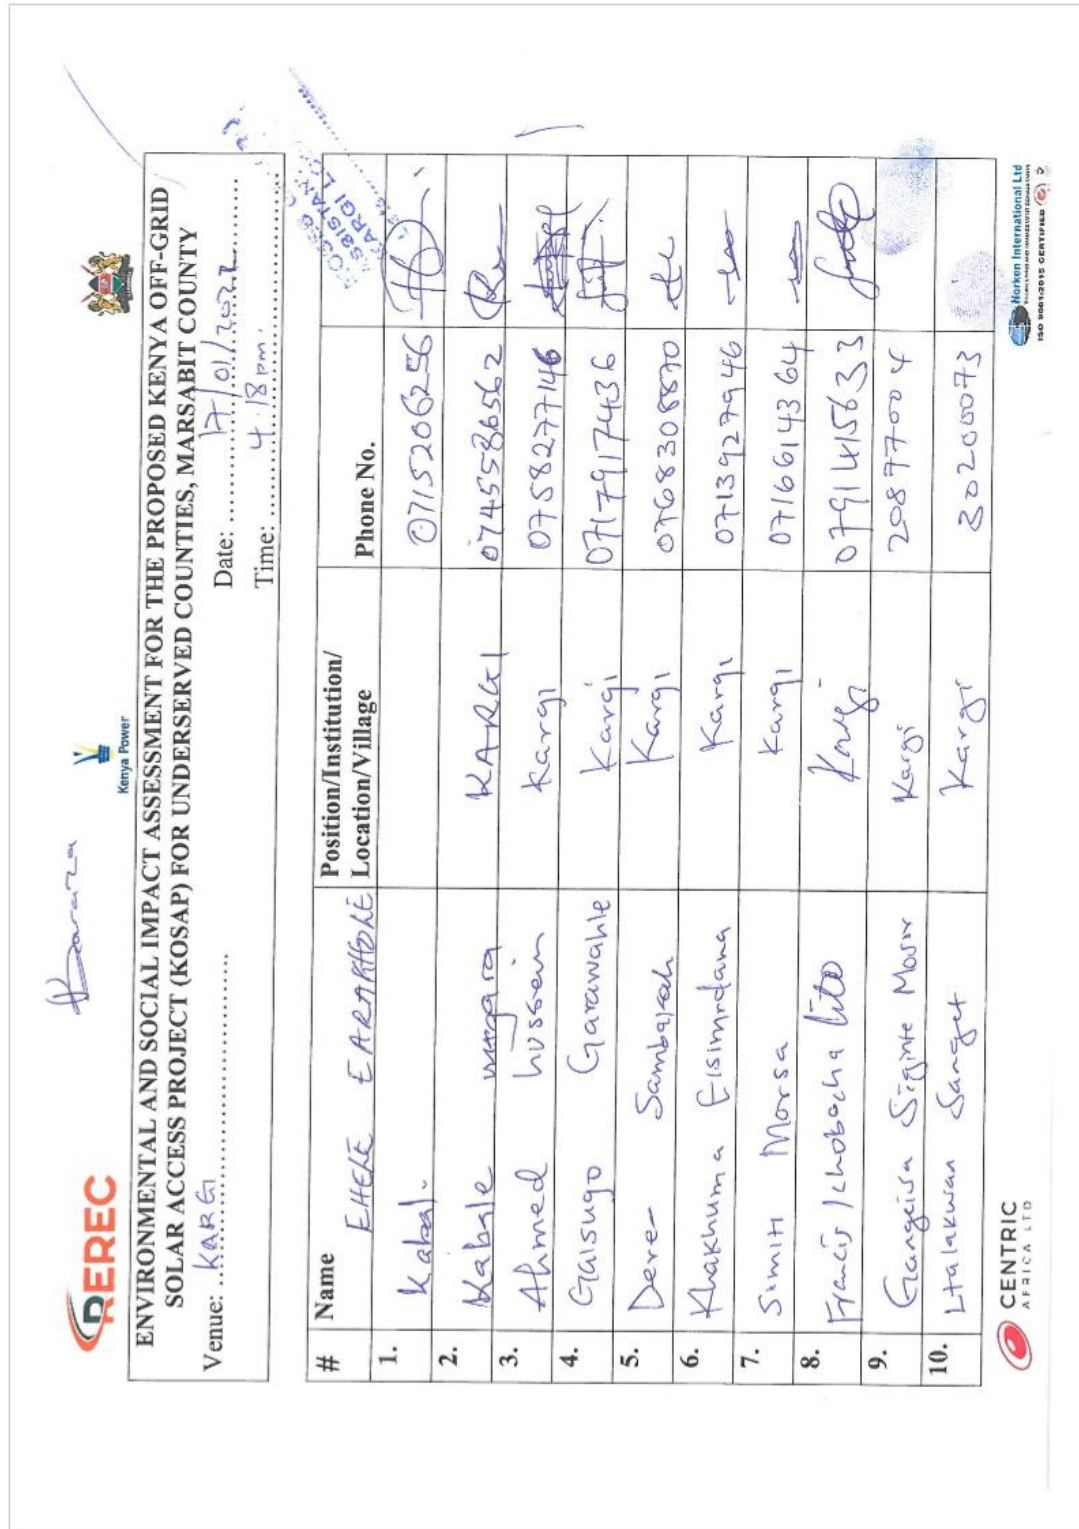 Baraza
REREC
Kenya Power
ENVIRONMENTAL AND SOCIAL IMPACT ASSESSMENT FOR THE PROPOSED KENYA OFF-GRID
SOLAR ACCESS PROJECT (KOSAP) FOR UNDERSERVED COUNTIES, MARSABIT COUNTY
Venue: KARGI Date: 17/01/2022
Time: 4:18pm.
# Name Position/Institution/Location/Village Phone No.
1. EHELE EARAKHOLE Kabal. 0715206256
2. Kabale KARGI 0745586562
3. Ahmed hussein Kargi 0758277146
4. Galsugo Garawahle Kargi 0717917436
5. Dere Sambarah Kargi 0768308870
6. Khakhuma Eisimrdana Kargi 0713927946
7. Simin Morsa Kargi 0716614364
8. Francis Khobocha Kargi 0791415633
9. Gangeisa Siginte Kargi 20877004
10. Ltalakwan Sanget Kargi 30200073
CENTRIC
AFRICA LTD
Norken International Ltd
ISO 9001:2015 CERTIFIED